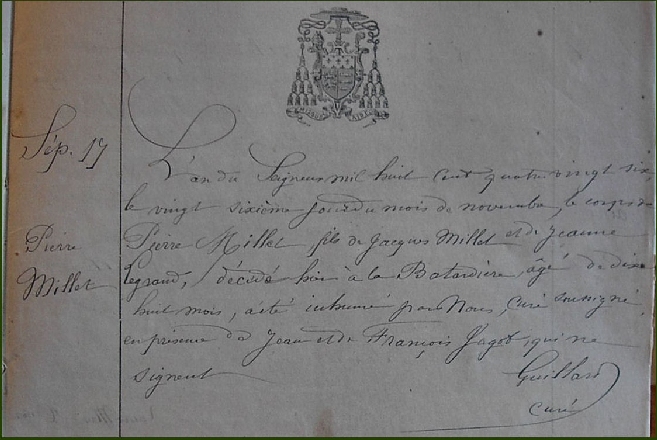 Sép. 17
Pierre
Millet
L'an du Seigneur mil huit cent quatre vingt six,
le vingt sixième jour du mois de novembre, le corps de
Pierre Millet, fils de Jacques Millet et de Jeanne
Legrand, décédé hier à la Batardière, âgé de dix
huit mois, a été inhumé par Nous, curé soussigné,
en présence de Jean et de François Jagot, qui ne
signent
Guillard
curé